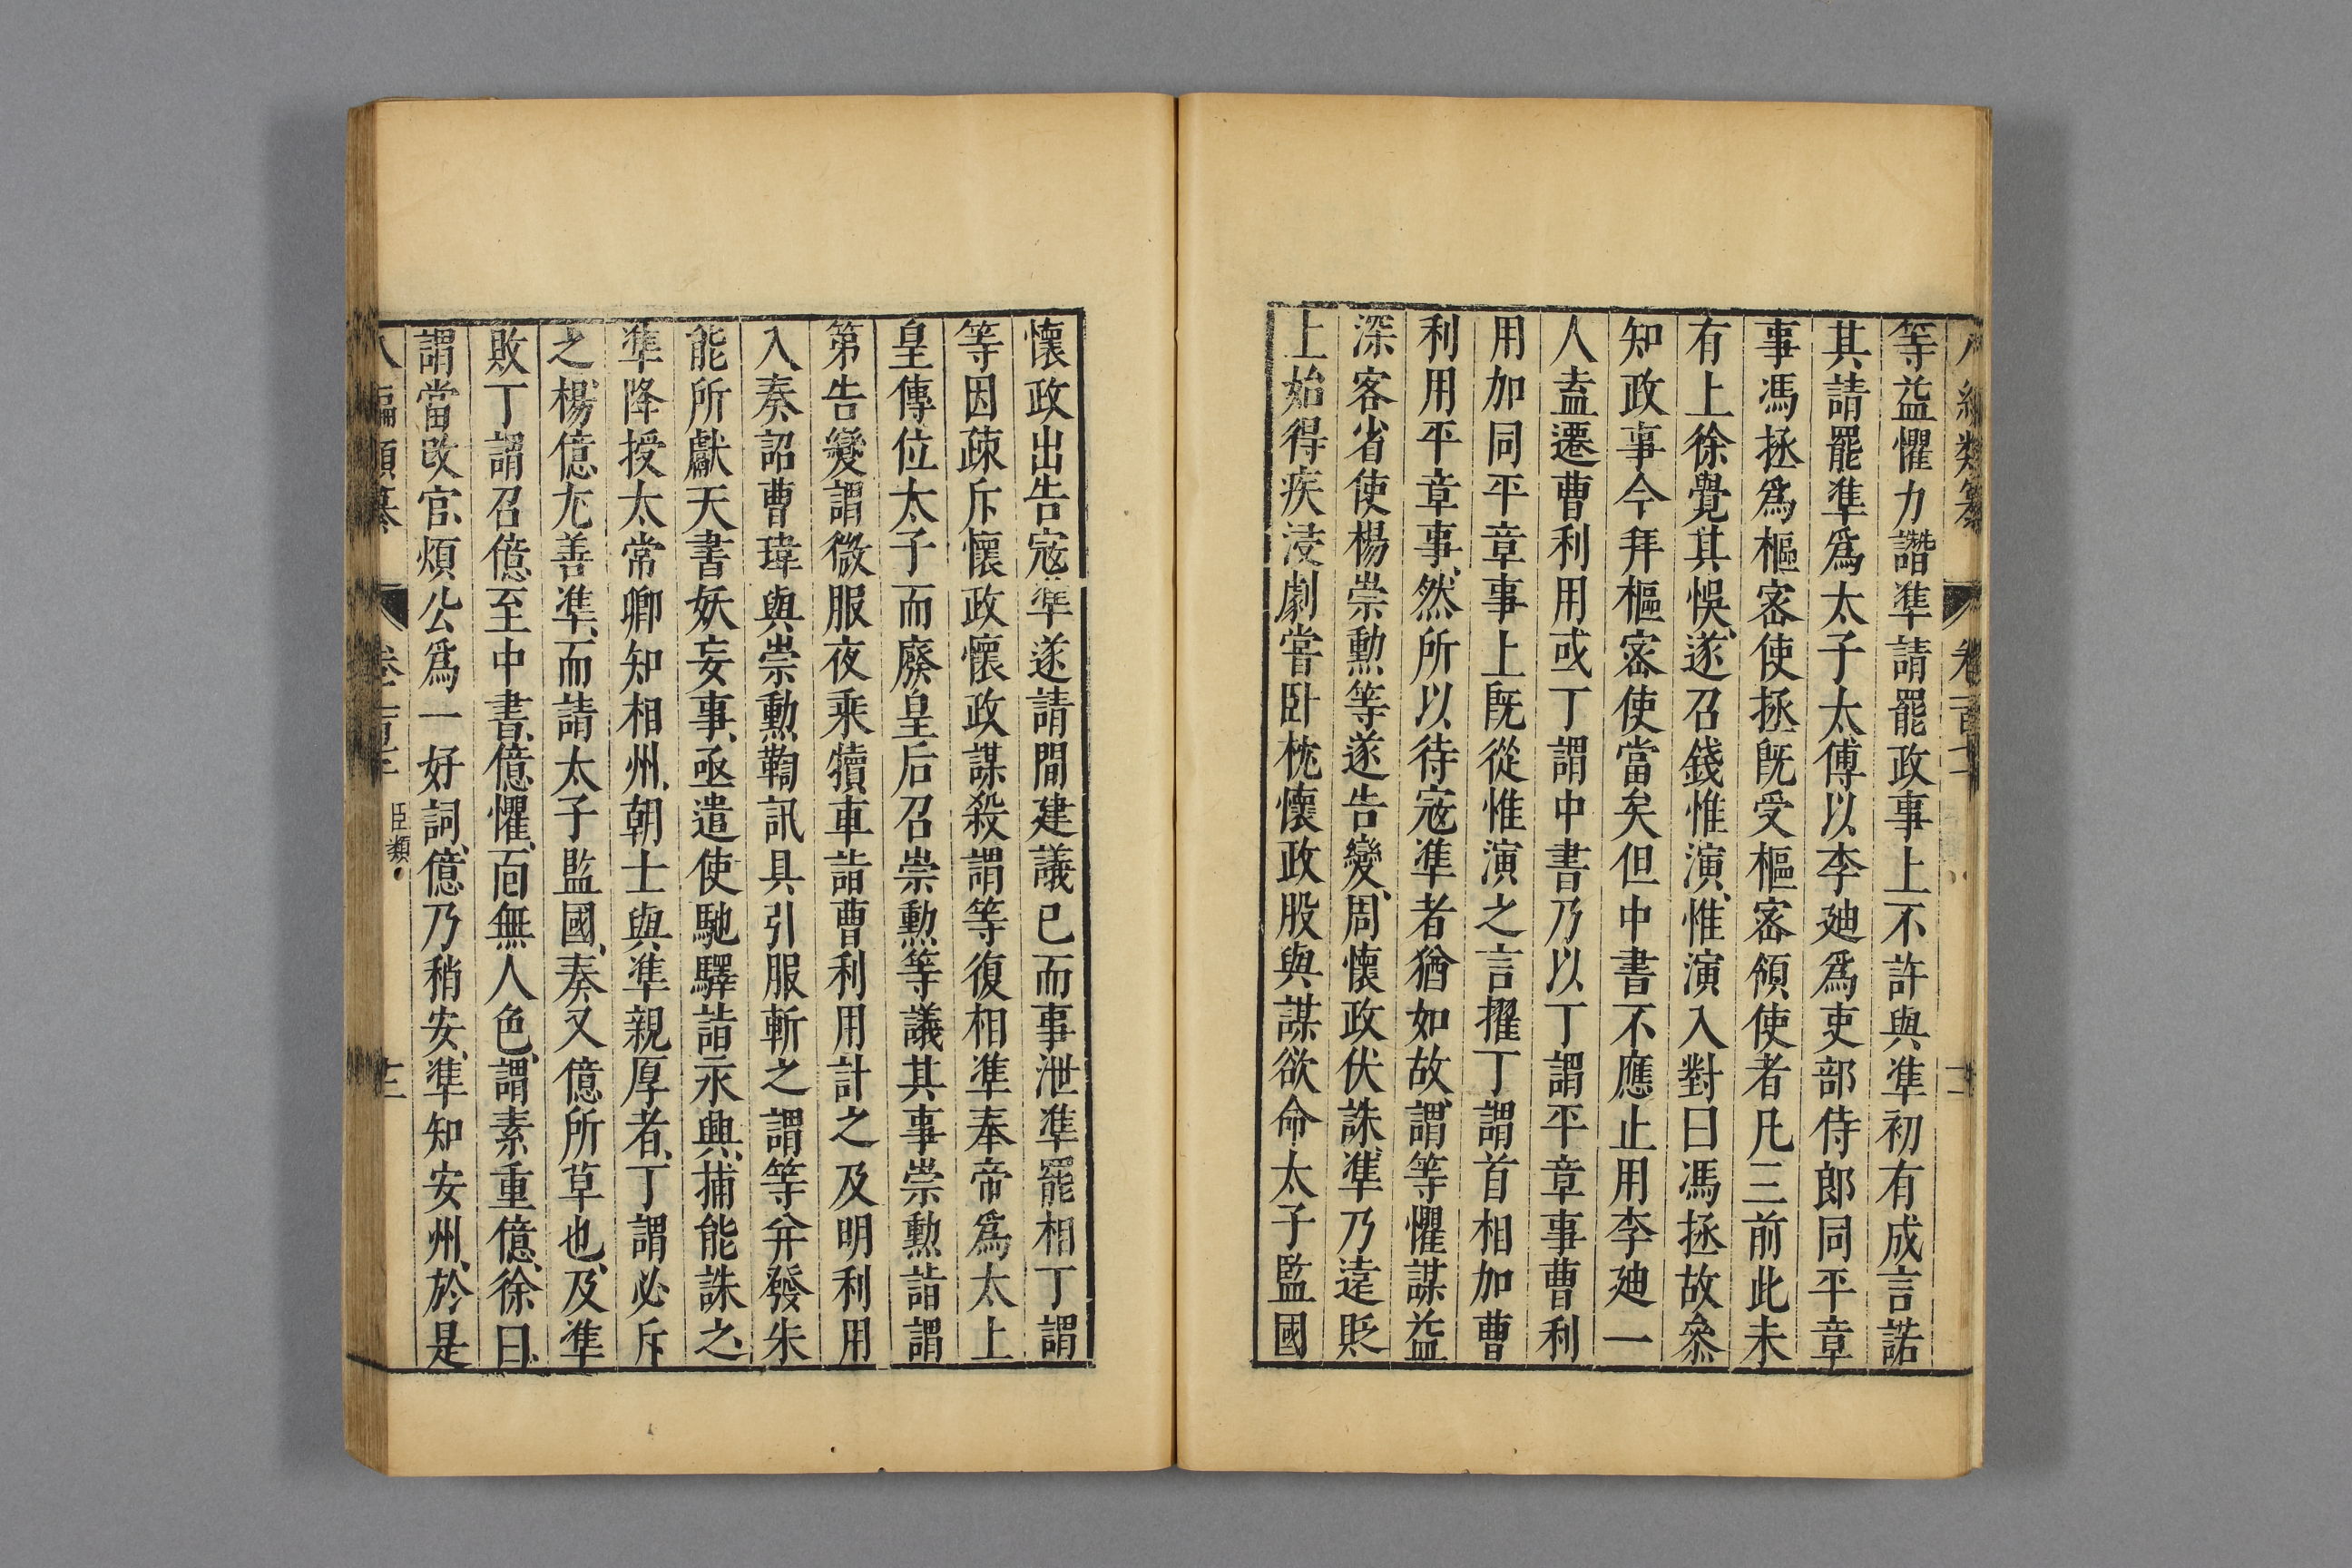 等益懼力譖準請罷政事上不許與準初有成言諾
其請罷準爲太子太傅以李廸爲吏部侍郎同平章
事馮拯爲樞密使拯旣受樞密領使者凡三前此未
有上徐覺其悞遂召錢惟演惟演入對曰馮拯故叅
知政事今拜樞密使當矣但中書不應止用李廸一
人盍遷曹利用或丁謂中書乃以丁謂平章事曹利
用加同平章事上旣從惟演之言擢丁謂首相加曹
利用平章事然所以待宼準者猶如故謂等懼謀益
深客省使楊崇勲等遂告變周懷政伏誅準乃遠貶
上始得疾浸劇嘗卧枕懷政股與謀欲命太子監國
懷政出告宼準遂請間建議已而事泄準罷相丁謂
等因疎斥懷政懷政謀殺謂等復相準奉帝爲太上
皇傳位太子而廢皇后召崇勲等議其事崇勲詣謂
第告變謂微服夜乘犢車詣曹利用計之及明利用
入奏詔曹瑋與崇勲鞫訊具引服斬之謂等幷發朱
能所獻天書妖妄事亟遣使馳驛詣永興捕能誅之
準降授太常卿知相州朝士與準親厚者丁謂必斥
之楊億尤善準而請太子監國奏又億所草也及準
敗丁謂召億至中書億懼面無人色謂素重億徐曰
謂當改官煩公爲一好詞億乃稍安準知安州於是
編類纂 卷一百三 臣類